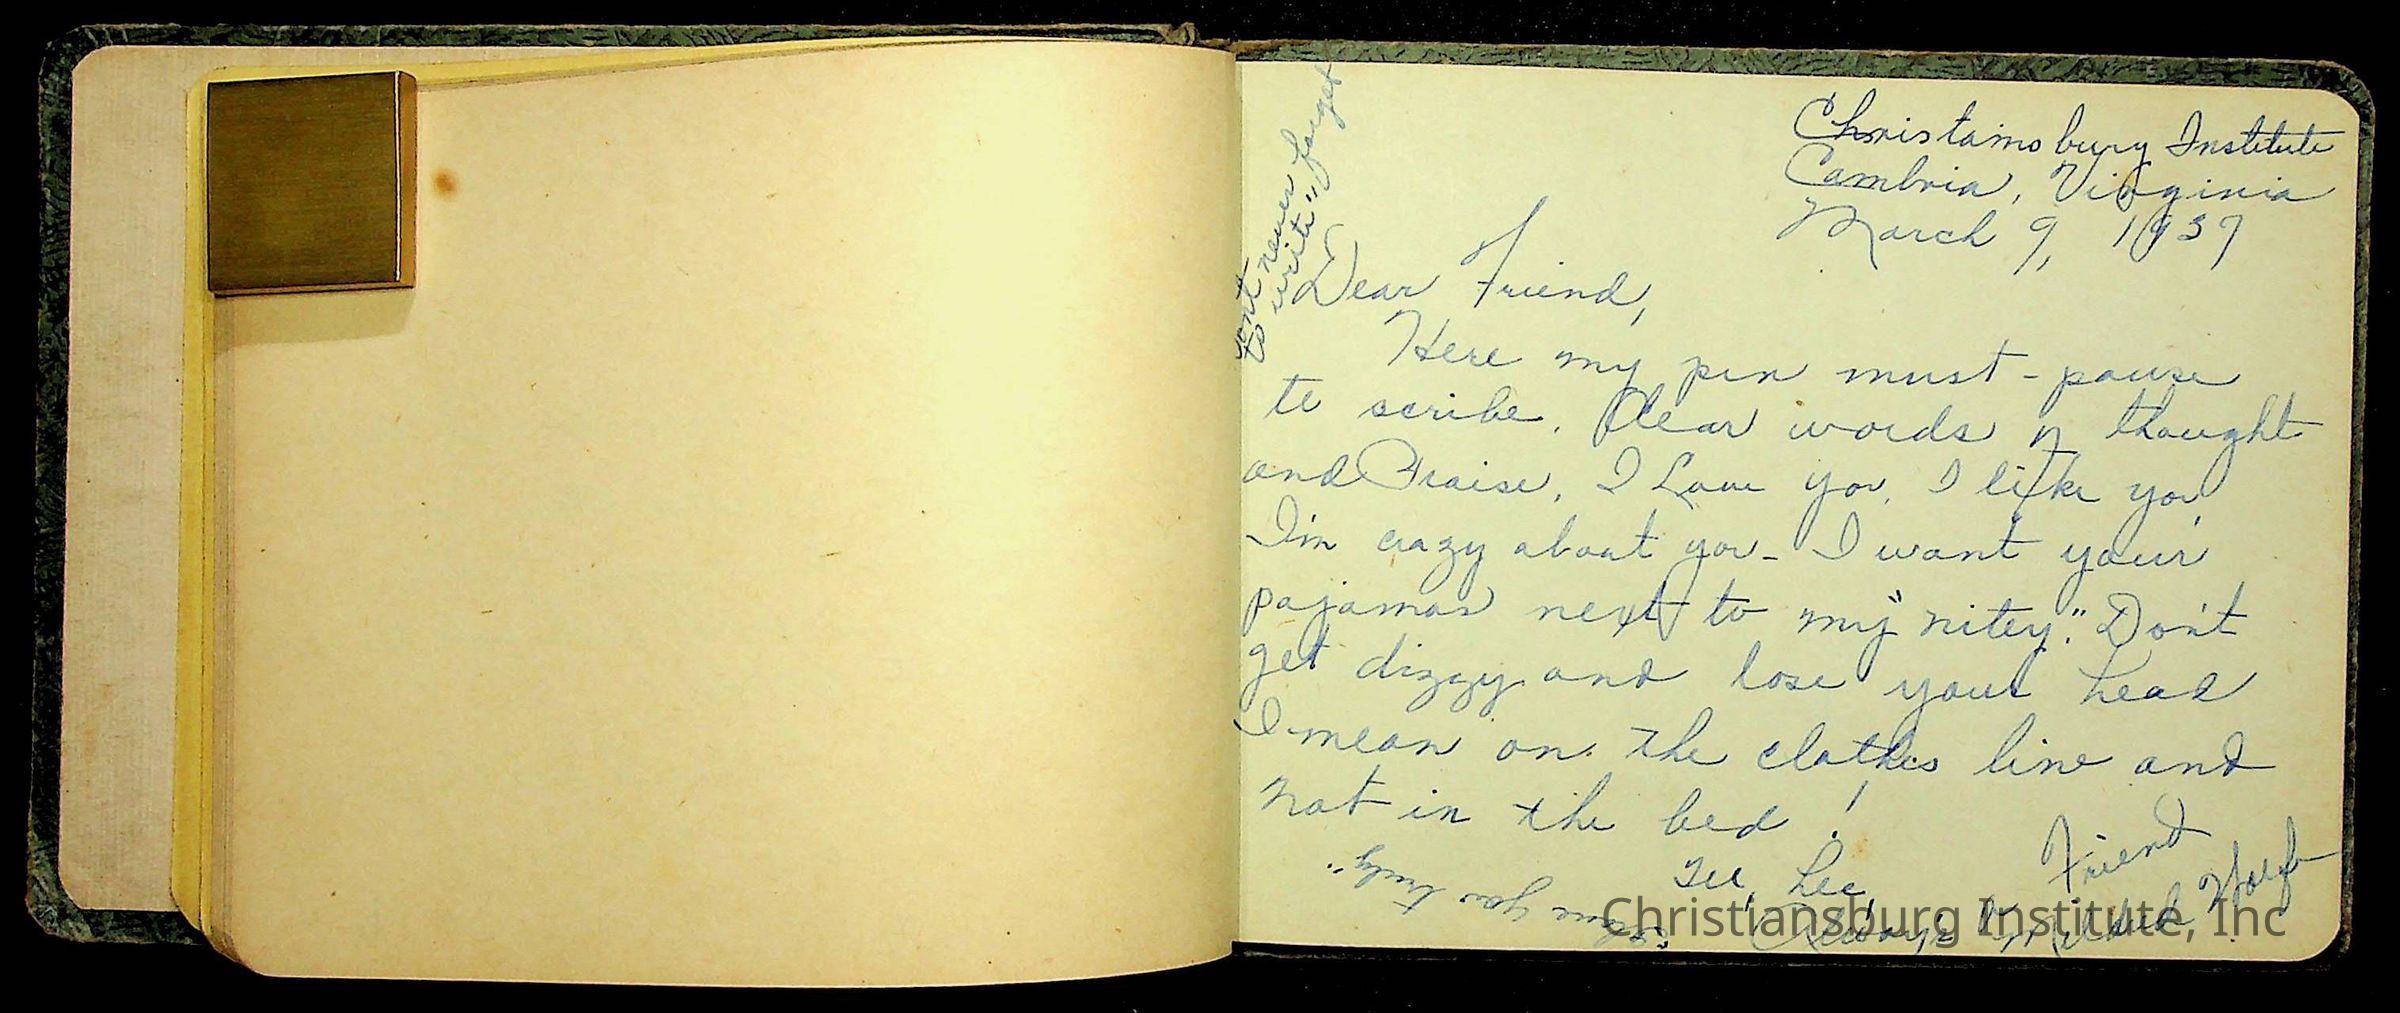 Christainsburg Institute
Cambria, Virginia
March 9, 1937
Dear Friend,
Here my pen must - pause
to scribe. Clear words of thought
and Praise. I Love you, I like you,
I'm crazy about you - I want your
pajamas next to my "nitey." Don't
get dizzy and lose your head
I mean on the clothes line and
not in the bed!
Tee, Hee,
Friend
Always Mildred
love you truly"
Dont never forget
to write"
Christiansburg Institute, Inc